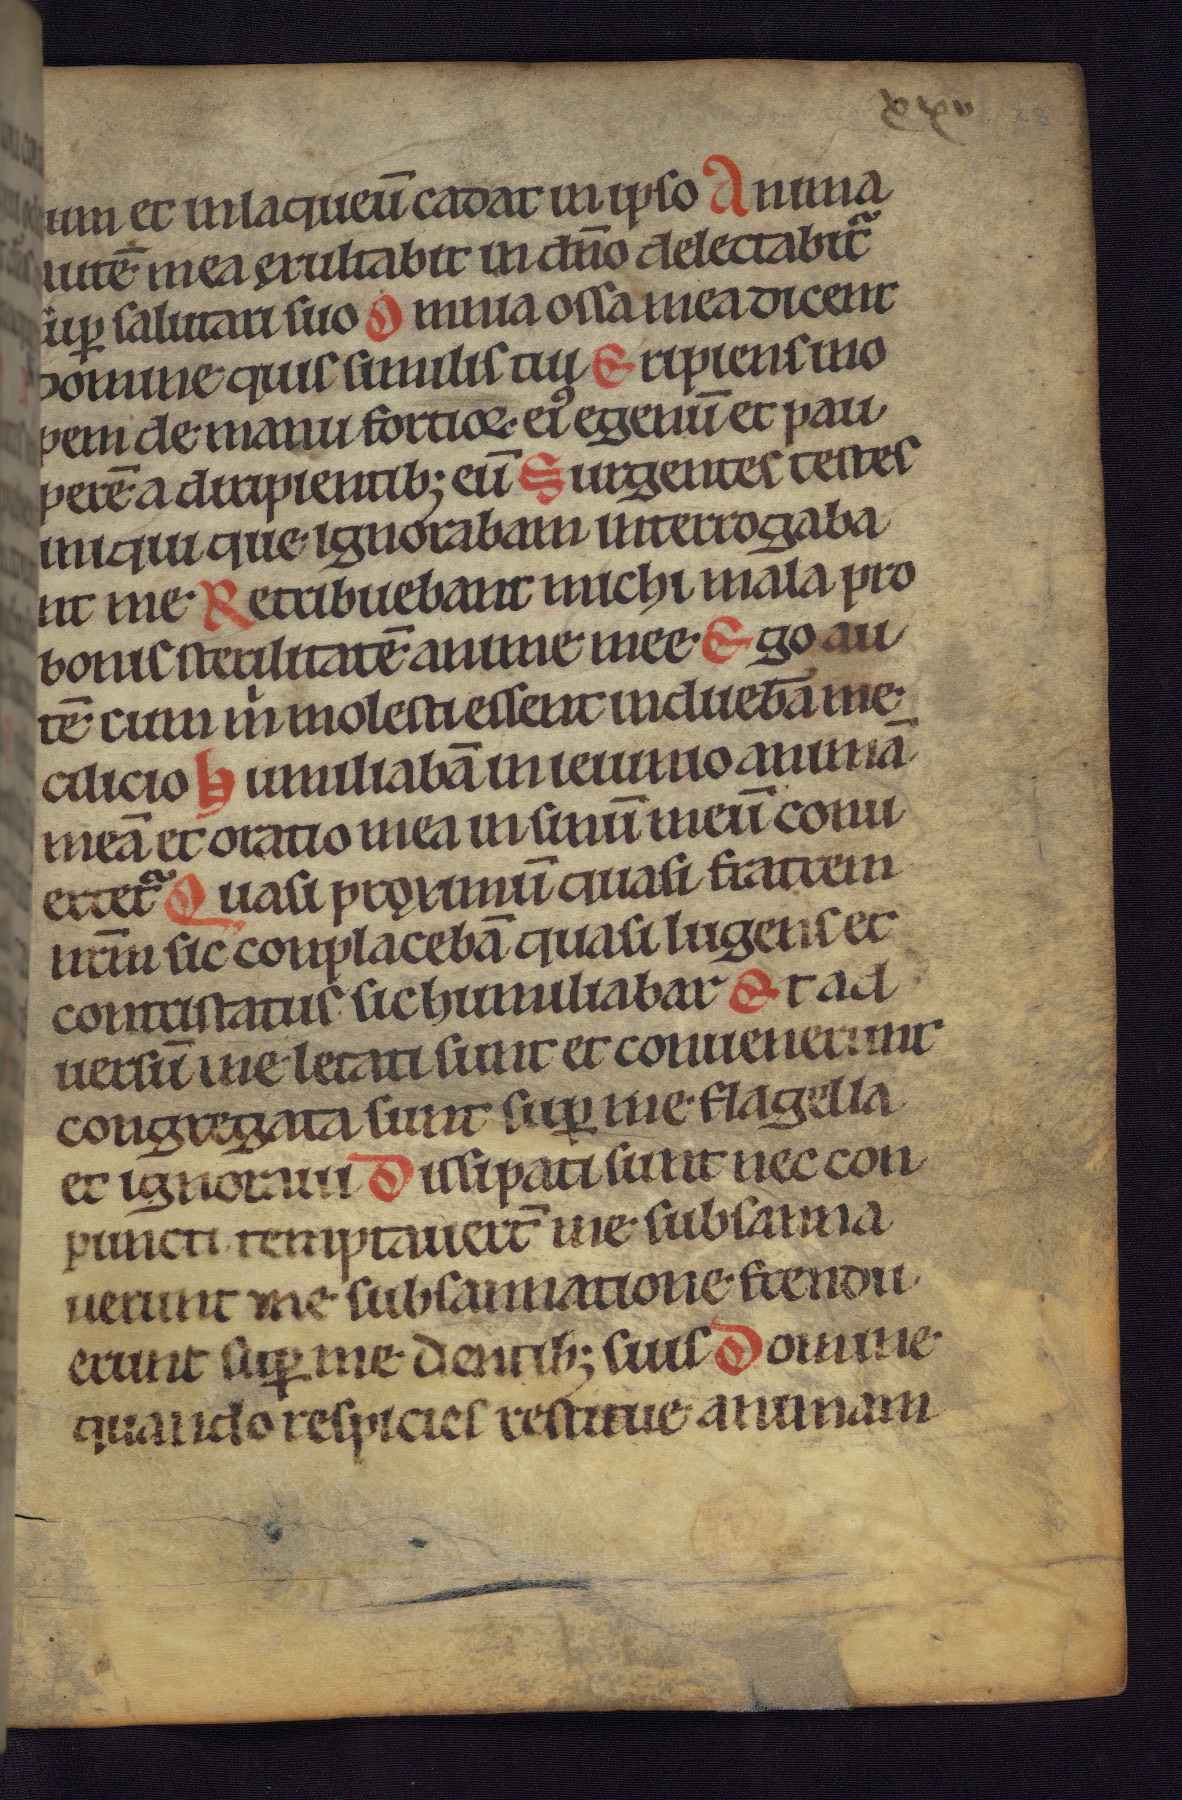 xxv 28
um et in laqueū cadat in ipso Anima
autē mea exultabit in dn̄o delectabit᷑
sup̱ salutari suo Omnia ossa mea dicent
domine quis similis tiui Eripiens ino
pem de manu fortioꝝ eiꝰ egenū et pau
perē a diripientib; eū Surgentes testes
iniqui que ignorabam interrogaba
nt me Retribuebant michi mala pro
bonis sterilitatē anime mee Ego au
tē cum m̍ molesti essent induebā me
cilicio Humiliabā in ieiunio animā
meā et oratio mea in sinū meū conu
ertet᷑ Quasi proximū quasi fratrem
nr̄m sic conplacebā quasi lugens et
contristatus sic humiliabar Et ad
uersū me letati sunt et conuenerunt
congregata sunt sup̱ me flagella
et ignoraui Dissipati sunt nec con
puncti temptauert̄ me subsanna
uerunt me subsannatione frendu
erunt sup̱ me dentib; suis Domine
quando respicies restitue animam